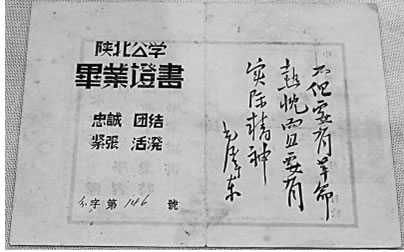 陕北公学
畢業證書
忠誠 团结
緊張 活潑
字第146號
不但要有革命
热忱而且要有
实际精神
毛泽东